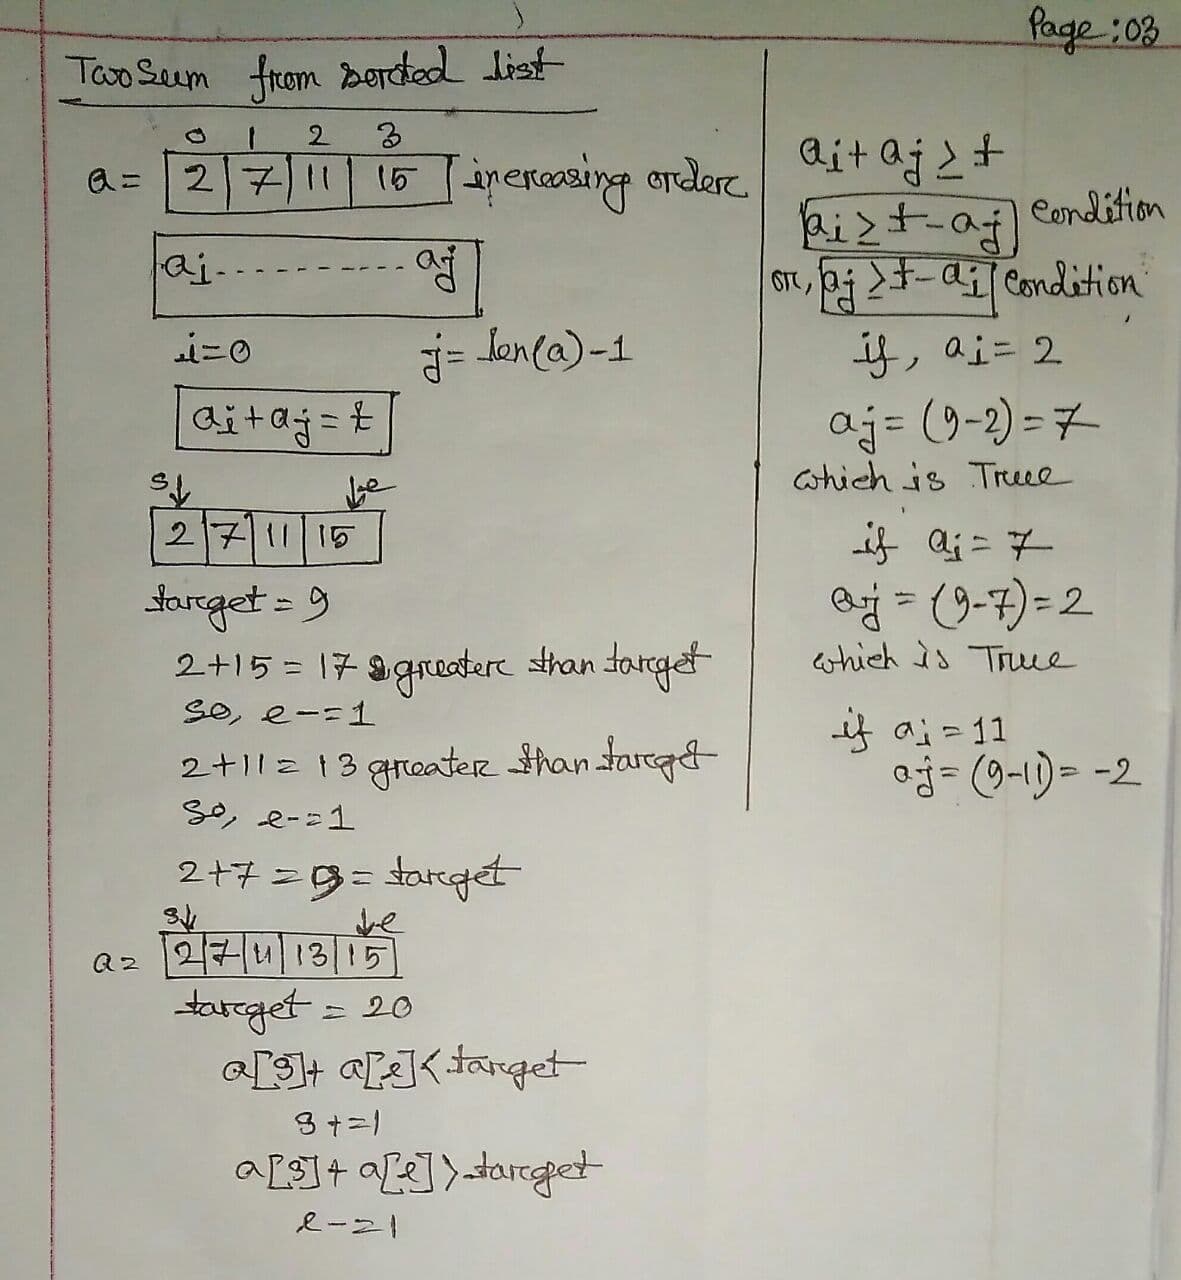 Page: 03
Two Sum from sorted list
0 1 2 3
a = 2 7 11 15 increasing order
ai - - - - - - - - - - aj
i=0 j= len(a)-1
ai+aj=t
s↓ ↓e
2 7 11 15
target = 9
2+15 = 17 greater than target
so, e-=1
2+11 = 13 greater than target
So, e-=1
2+7 = 9 = target
s↓ ↓e
a = 2 7 11 13 15
target = 20
a[s]+ a[e]< target
s+=1
a[s]+ a[e]> target
e-=1
ai+aj ≥ t
ai ≥ t-aj condition
or, aj ≥ t-ai condition
if, ai = 2
aj = (9-2) = 7
which is True
if ai = 7
aj = (9-7) = 2
which is True
if ai = 11
aj = (9-11) = -2